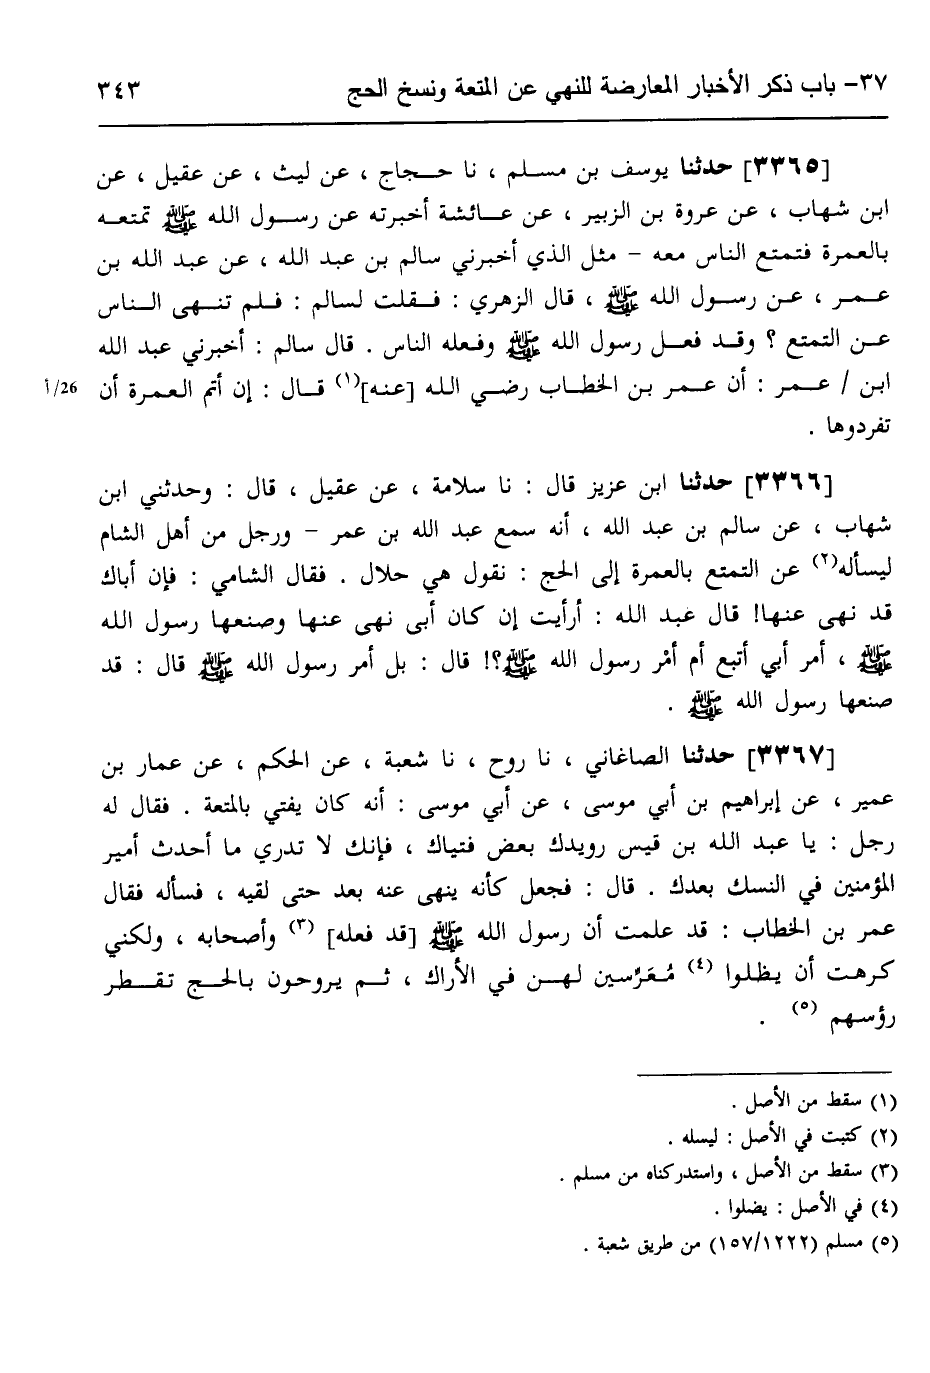 ٣٧- باب ذكر الأخبار المعارضة للنهي عن المتعة ونسخ الحج ٣٤٣
[٣٣٦٥] حدثنا يوسف بن مسلم ، نا حجاج ، عن ليث ، عن عقيل ، عن
ابن شهاب ، عن عروة بن الزبير ، عن عائشة أخبرته عن رسول الله ﷺ تمتعه
بالعمرة فتمتع الناس معه – مثل الذي أخبرني سالم بن عبد الله ، عن عبد الله بن
عمر ، عن رسول الله ﷺ ، قال الزهري : فقلت لسالم : فلم تنهى الناس
عن التمتع ؟ وقد فعل رسول الله ﷺ وفعله الناس . قال سالم : أخبرني عبد الله
ابن / عمر : أن عمر بن الخطاب رضي الله [عنه](١) قال : إن أتم العمرة أن
26/أ
تفردوها .
[٣٣٦٦] حدثنا ابن عزيز قال : نا سلامة ، عن عقيل ، قال : وحدثني ابن
شهاب ، عن سالم بن عبد الله ، أنه سمع عبد الله بن عمر – ورجل من أهل الشام
ليسأله(٢) عن التمتع بالعمرة إلى الحج : نقول هي حلال . فقال الشامي : فإن أباك
قد نهى عنها! قال عبد الله : أرأيت إن كان أبى نهى عنها وصنعها رسول الله
ﷺ ، أمر أبي أتبع أم أمْر رسول الله ﷺ؟! قال : بل أمر رسول الله ﷺ قال : قد
صنعها رسول الله ﷺ .
[٣٣٦٧] حدثنا الصاغاني ، نا روح ، نا شعبة ، عن الحكم ، عن عمار بن
عمير ، عن إبراهيم بن أبي موسى ، عن أبي موسى : أنه كان يفتي بالمتعة . فقال له
رجل : يا عبد الله بن قيس رويدك بعض فتياك ، فإنك لا تدري ما أحدث أمير
المؤمنين في النسك بعدك . قال : فجعل كأنه ينهى عنه بعد حتى لقيه ، فسأله فقال
عمر بن الخطاب : قد علمت أن رسول الله ﷺ [قد فعله] (٣) وأصحابه ، ولكني
كرهت أن يظلوا (٤) مُعَرِّسين لهن في الأراك ، ثم يروحون بالحج تقطر
رؤسهم (٥) .
(١) سقط من الأصل .
(٢) كتبت في الأصل : ليسله .
(٣) سقط من الأصل ، واستدركناه من مسلم .
(٤) في الأصل : يضلوا .
(٥) مسلم (١٥٧/١٢٢٢) من طريق شعبة .